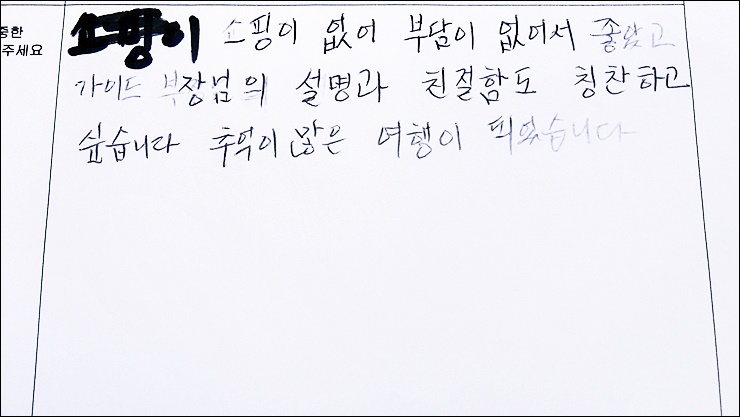 중한
주세요
쇼핑이 쇼핑이 없어 부담이 없어서 좋았고
가이드 부장님의 설명과 친절함도 칭찬하고
싶습니다 추억이 많은 여행이 되었습니다